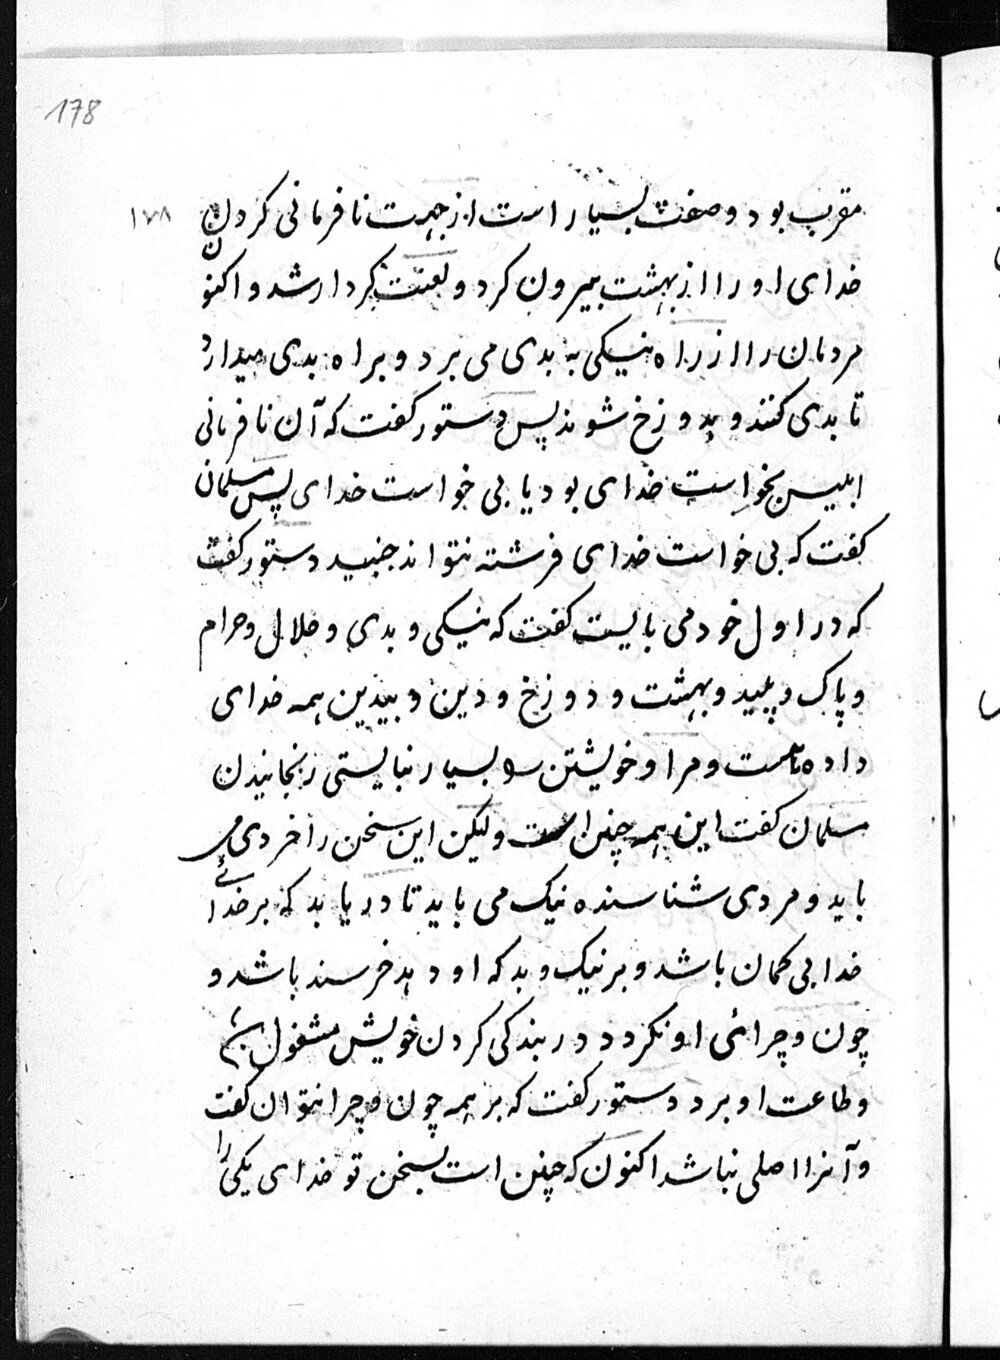 178
۱۷۸
مقرب بود و صفت بسیار است از جهت نافرمانی کردن
خدای او را از بهشت بیرون کرد و لعنت کردار شد و اکنون
مردمان را از راه نیکی به بدی می برد و براه بدی میدارد
تا بدی کنند و بدوزخ شوند پس دستور گفت که آن نافرمانی
ابلیس بخواست خدای بود یا بی خواست خدای پس مسلمان
گفت که بی خواست خدای فرشته نتواند جنبید دستور گفت
که در اول خود می بایست گفت که نیکی و بدی و حلال و حرام
و پاک و پلید و بهشت و دوزخ و دین و بیدین همه خدای
داده است و مرا و خویشتن را بسیار نبایستی رنجانیدن
مسلمان گفت این همه چنین است ولیکن این سخن را خردی می
باید و مردی شناسنده نیک می باید تا دریابد که بر خدائے
خدا بی گمان باشد و بر نیک و بد که او دهد خرسند باشد و
چون و چرائی او نگردد در بندگی کردن خویش مشغول
و طاعت او برد دستور گفت که بر همه چون و چرا نتوان گفت
و آنرا اصلی نباشد اکنون که چنین است بسخن تو خدای یکی را